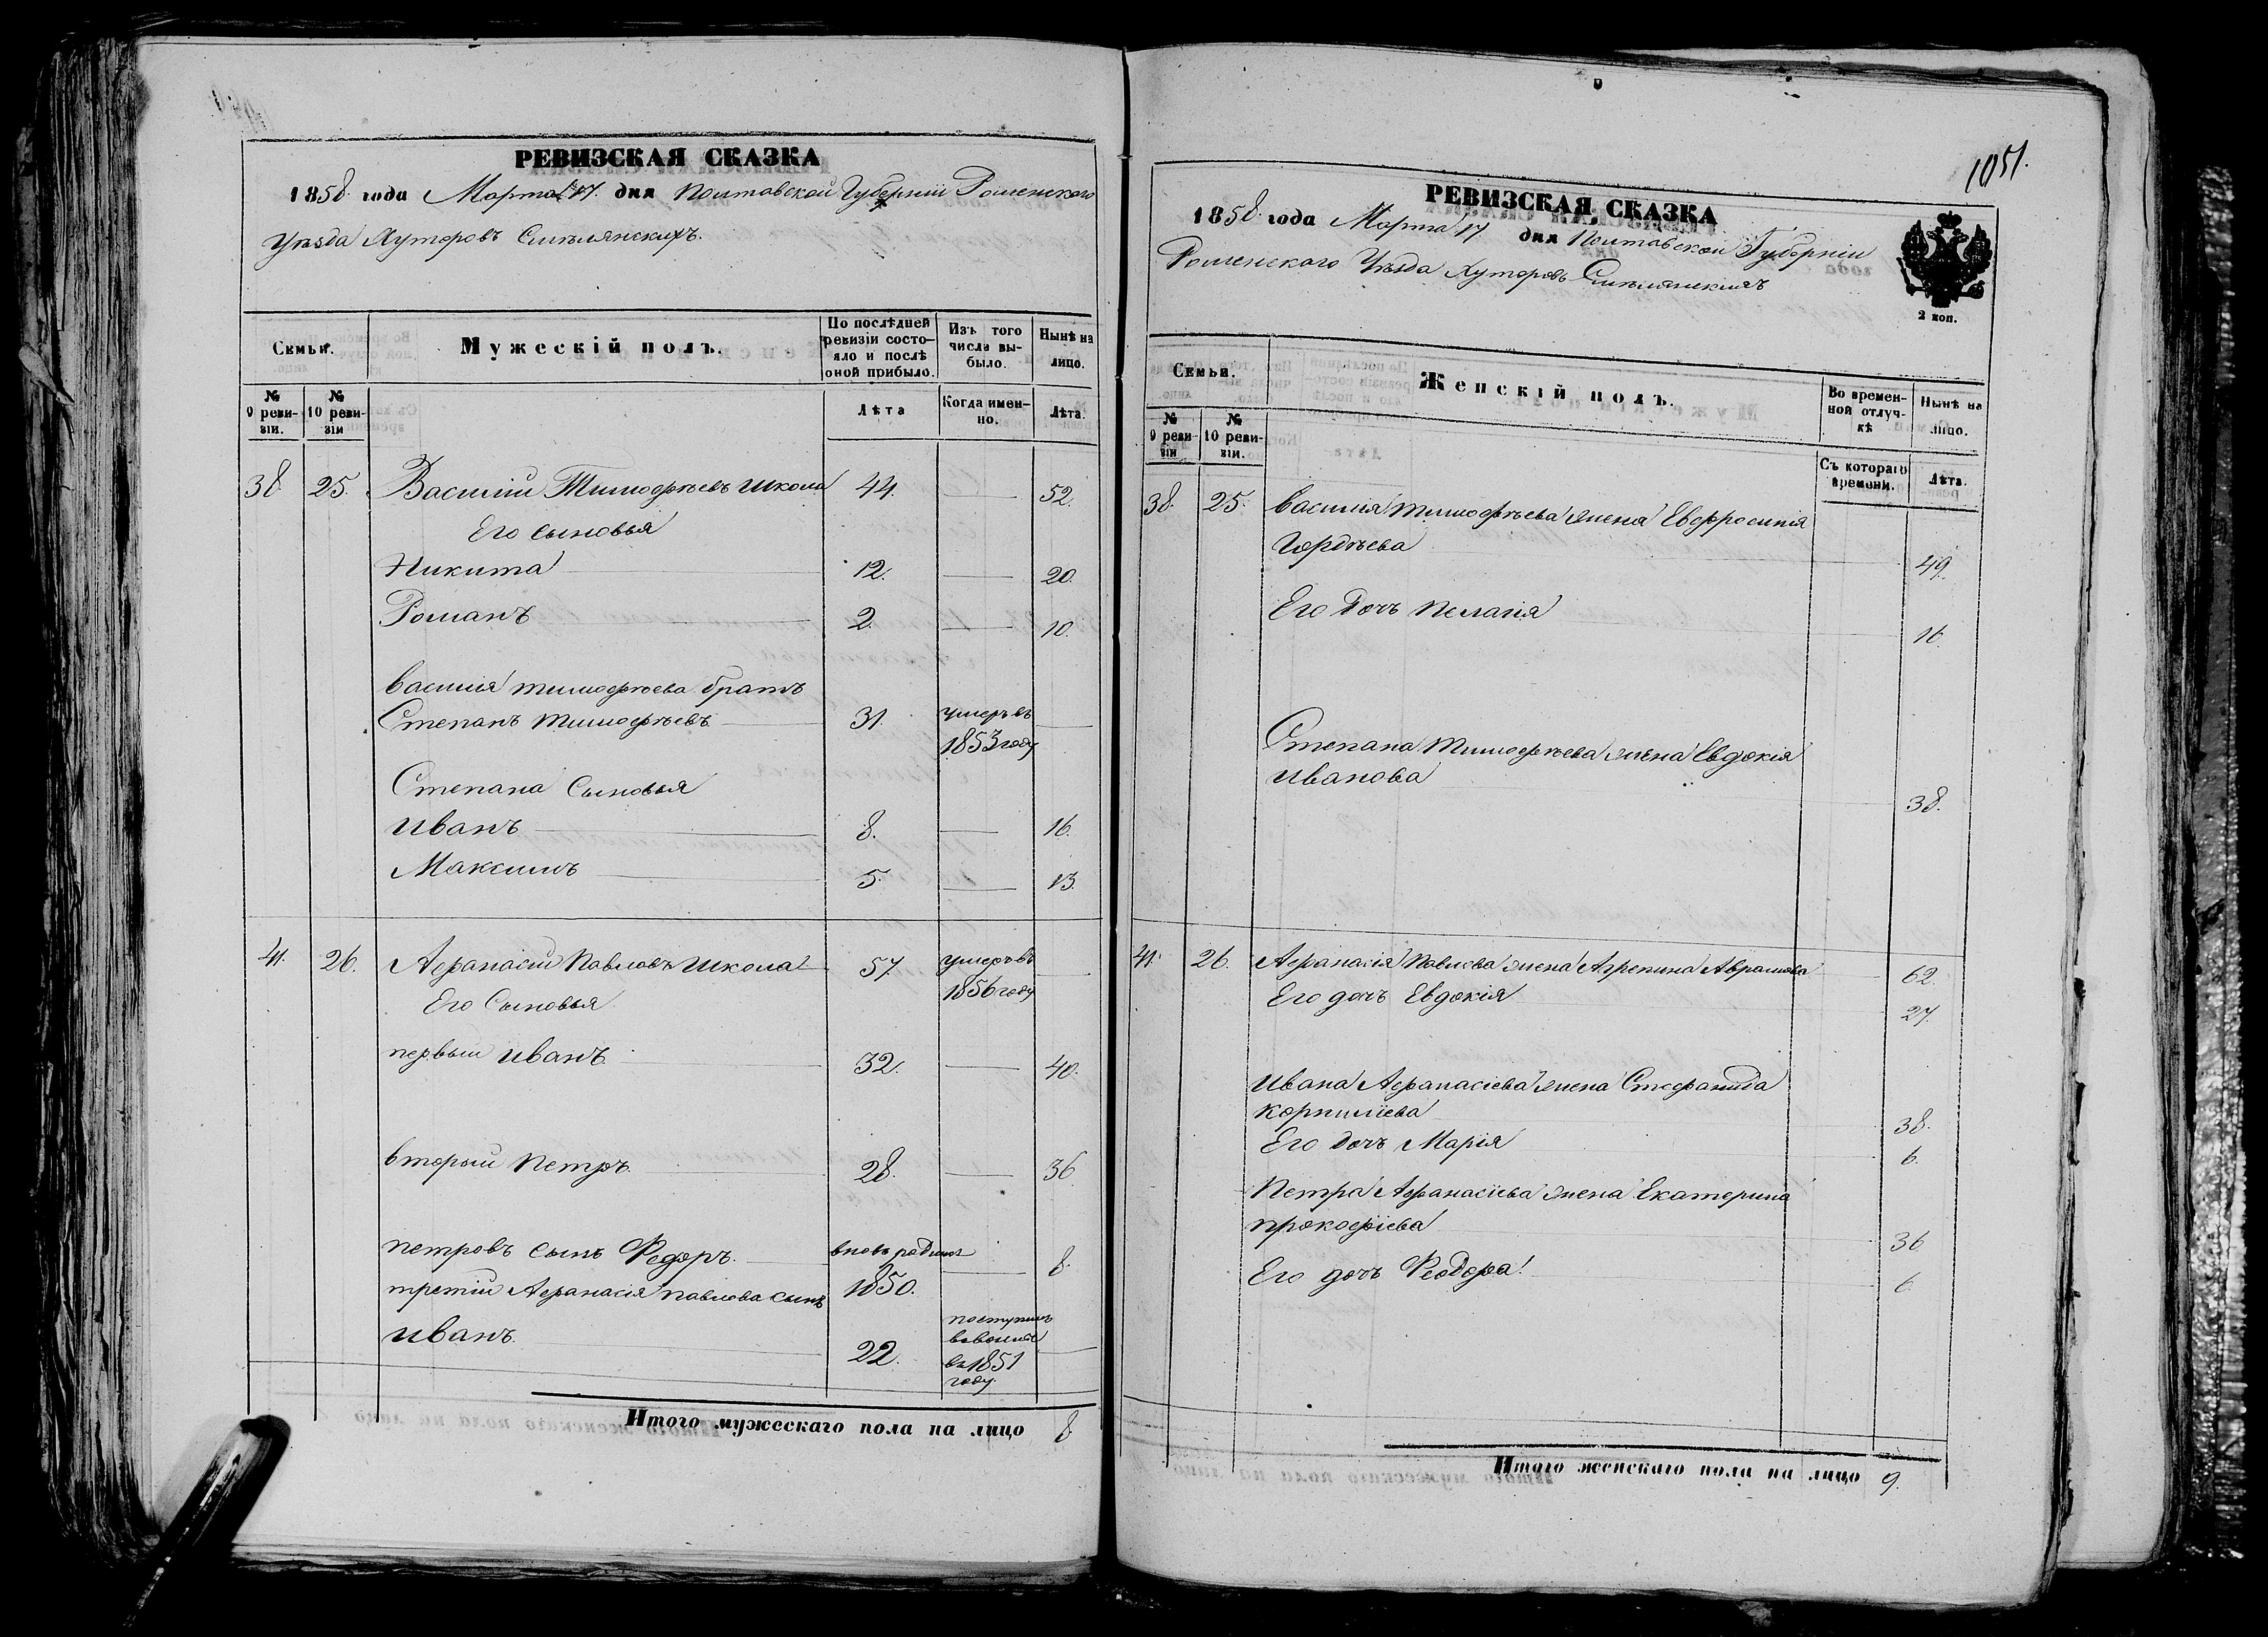 РЕВИЗСКАЯ СКАЗКА
1858 года Марта 17. дня Полтавской Губерніи Роменского
Уѣзда Хуторовъ Смѣлянскихъ.
Семьи.
Мужескій полъ.
По послѣдней ревизіи состояло и послѣ оной прибыло.
Изъ того числа выбыло.
Нынѣ на лицо.
№ 9 ревизіи.
№ 10 ревизіи
Лѣта
Когда именно.
Лѣта.
38 25. Василій Тимофѣевъ Школа 44. 52.
Его сыновья
Никита 12. 20.
Романъ 2. 10.
Василія Тимофѣева братъ
Степанъ Тимофѣевъ 31. умеръ въ
1853 году
Степана Сыновья
Иванъ 8. 16.
Максимъ 5. 13.
41. 26. Афанасій Павловъ Школа 57 умеръ въ
1856 году
Его Сыновья
первый Иванъ 32. 40.
вторый Петръ 28. 36
Петровъ сынъ Федоръ вновь рожденъ 8.
третій Афанасія Павлова сынъ 1850.
Иванъ 22. поступилъ
въ
въ 1851
году
Итого мужескаго пола на лицо 8
1051.
РЕВИЗСКАЯ СКАЗКА
1858 года Марта 17 дня Полтавской Губерніи
Роменского Уѣзда Хуторовъ Смѣлянскихъ
2 коп.
Семьи.
Женскій полъ.
Во временной отлучкѣ
Нынѣ на лицо.
№ 9 ревизіи
№ 10 ревизіи.
Съ котораго времени.
Лѣта.
38. 25. Василія Тимофѣева жена Евфросинія
Гордѣева 49.
Его дочь Пелагія 16
Степана Тимофѣева жена Евдокія
Иванова 38.
41. 26. Афанасія Павлова жена Агрепина Аврамова 62.
Его дочь Евдокія 27.
Ивана Афанасіева жена Стефанида
Корниліева 38.
Его дочь Марія 6.
Петра Афанасіева жена Екатерина
Прокофіева 36
Его дочь Феодора 6.
Итого женскаго пола на лицо 9.